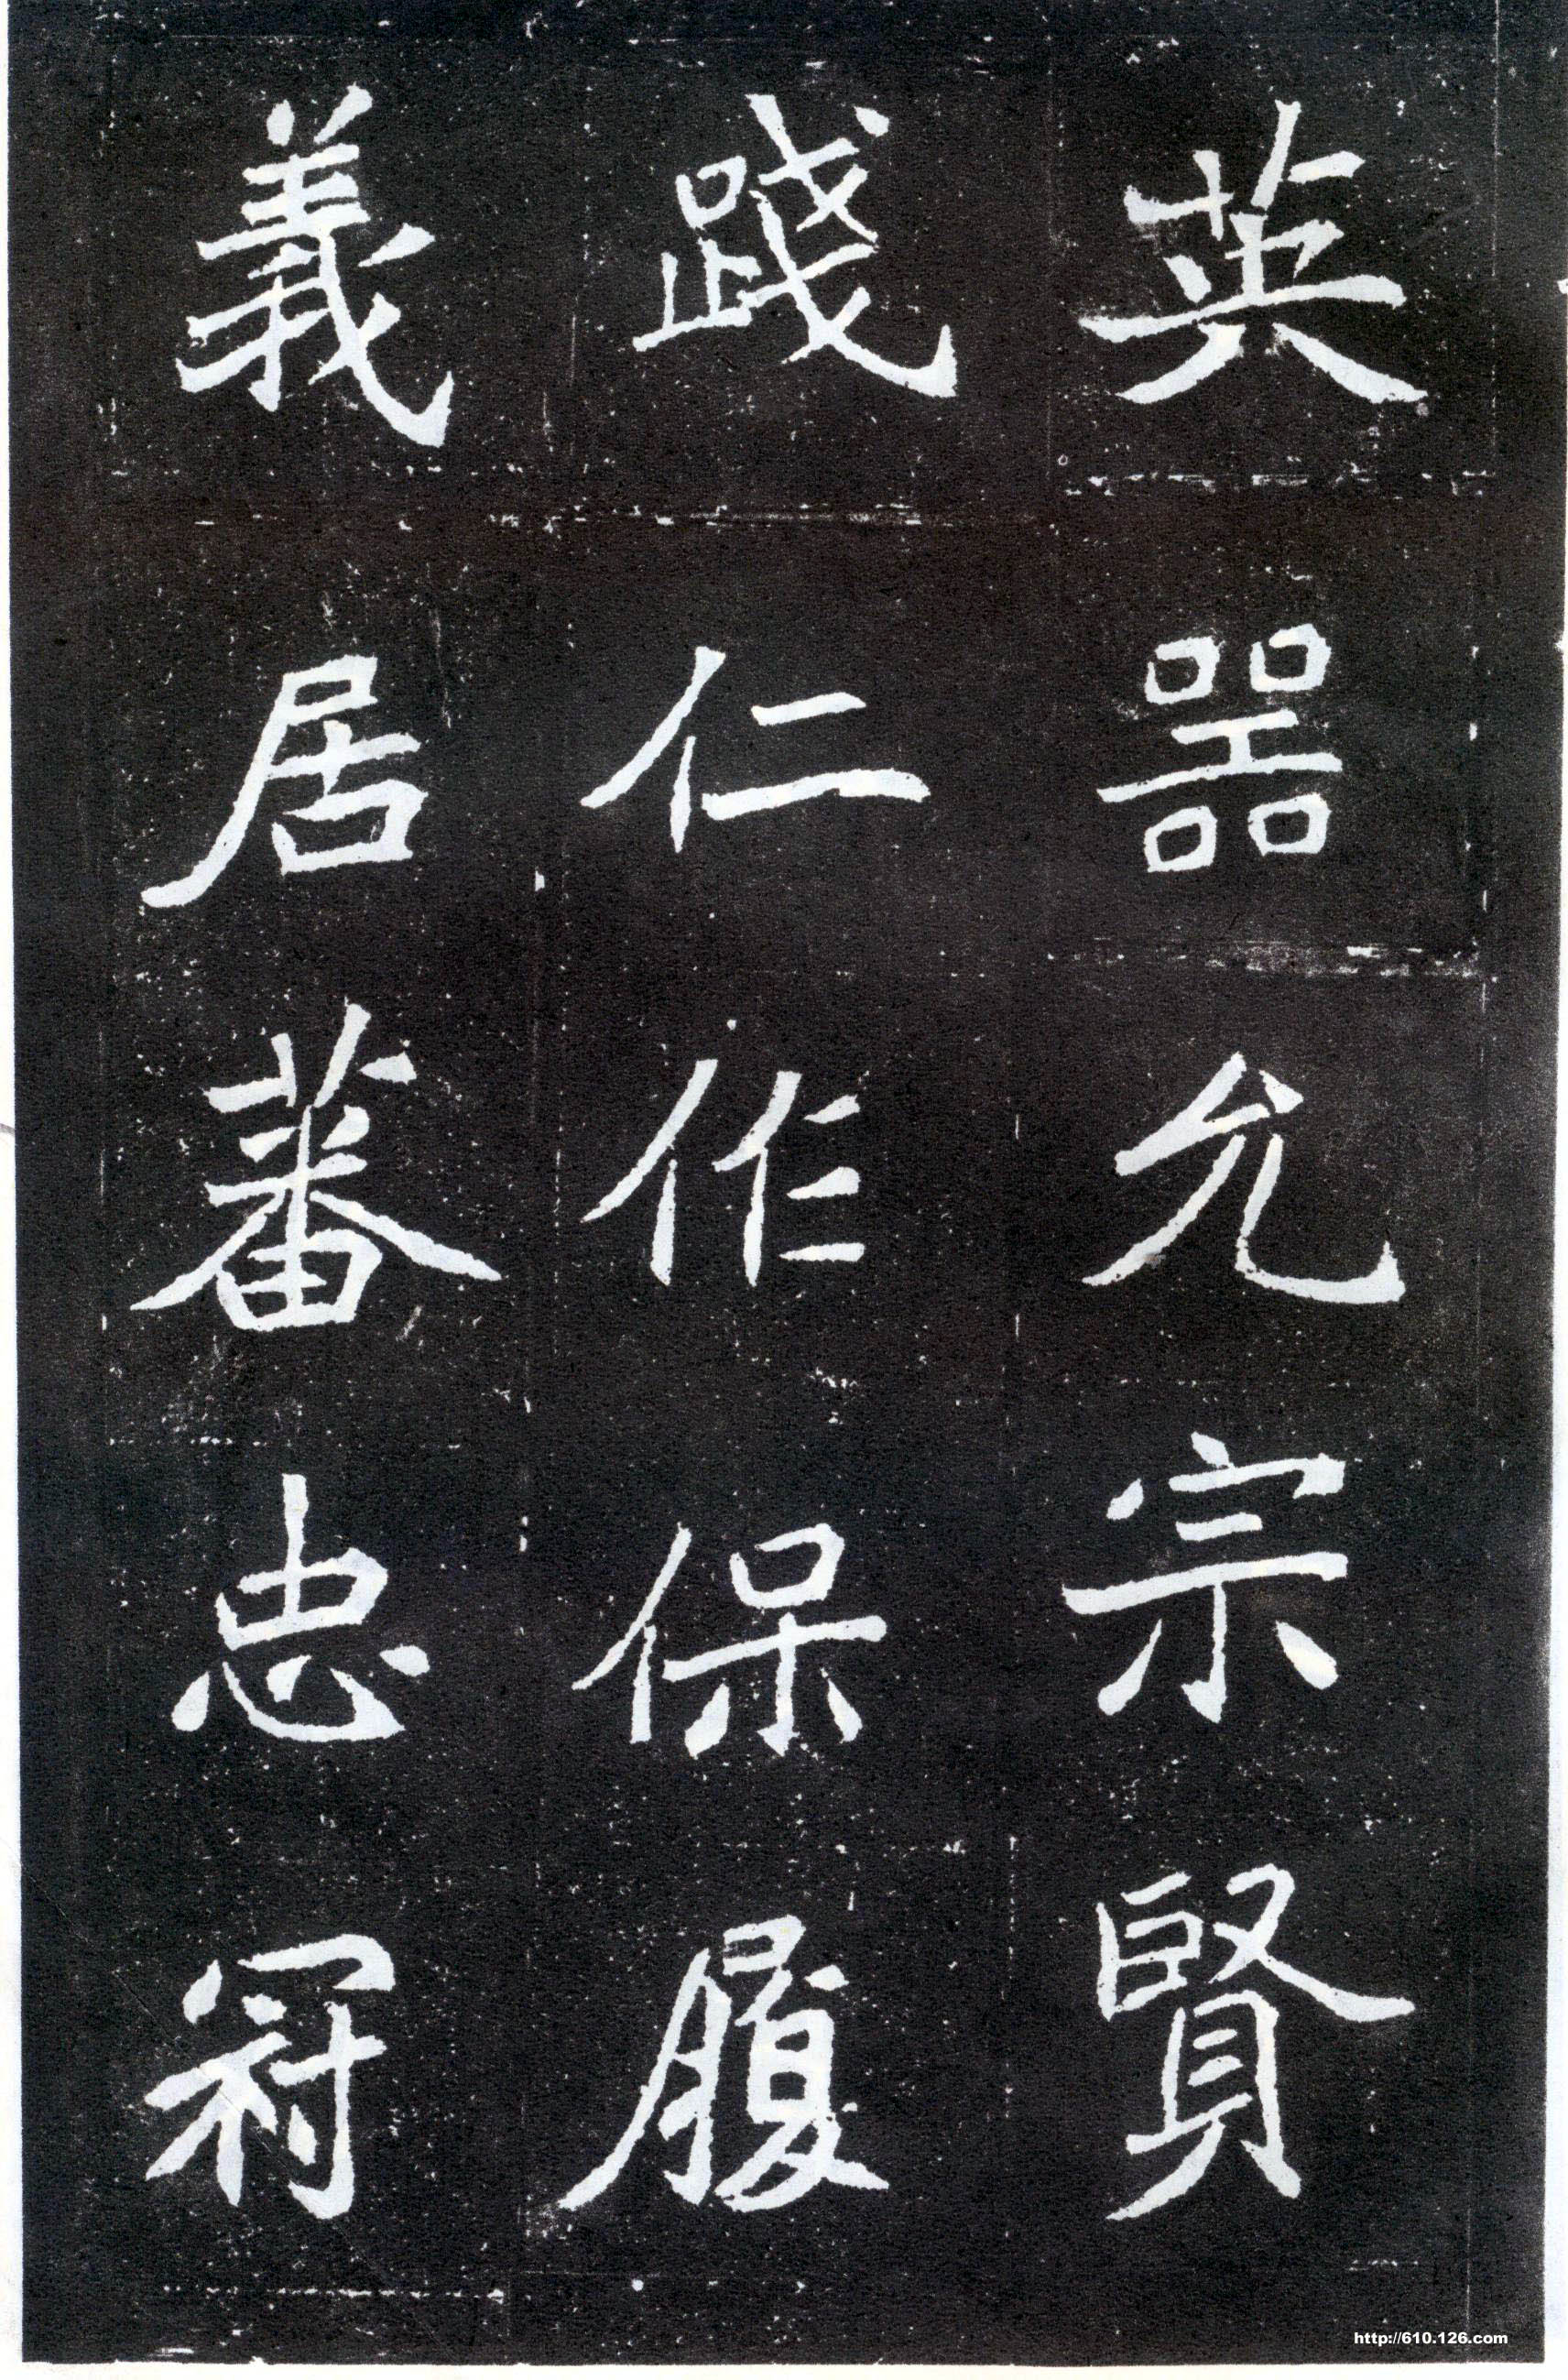 英器允宗賢
踐仁作保履
義居蕃忠冠
http://610.126.com